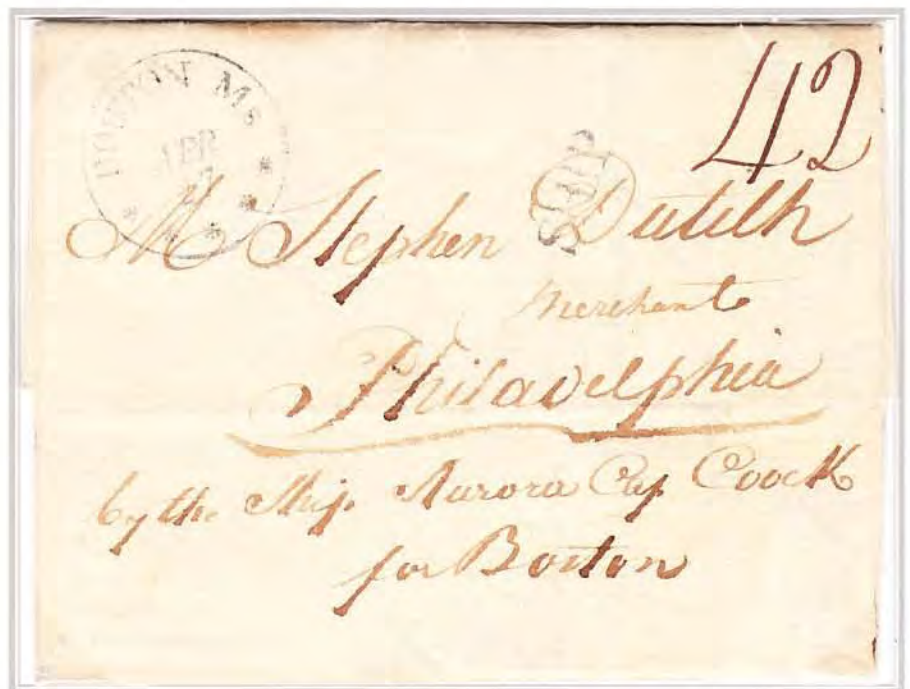 BOSTON Ms
APR
42
SHIP
M Stephen Dutilh
Merchant
Philadelphia
by the Ship Aurora Cap Coock
for Boston